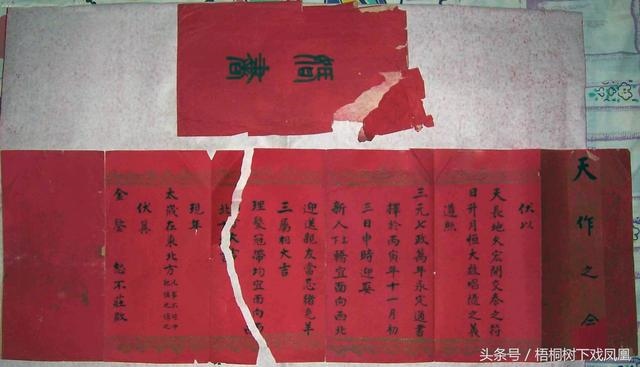 天作之合
伏以
天長地久宏開交泰之符
日升月恒大啟唱隨之義
遵照
三元七政萬年永定通書
擇於丙寅年十一月初
三日申時迎娶
新人下轎宜面向西北
迎送親友當忌猪兔羊
三屬相大吉
理髮冠帶均宜面向西
北
現年
太歲在東北方
伏冀
金鑒 恕不莊啟
头条号 / 梧桐树下戏凤凰